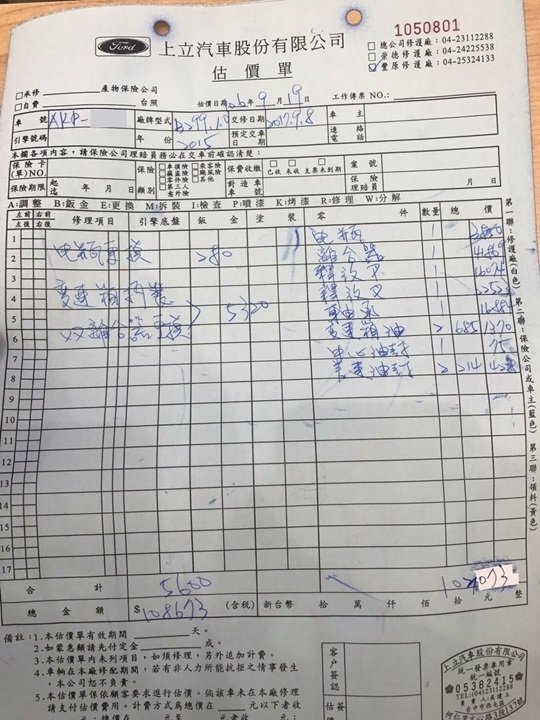 1050801
Ford 上立汽車股份有限公司
估價單
□總公司修護廠:04-23112288
□崇德修護廠:04-24225538
☑豐原修護廠:04-25324133
□承修 產物保險公司
□自費 台照 估價日106年9月19日 工作傳票NO.
車號 AKP- 廠牌型式 交修日期 2017.9.8 車主
引擎號碼 年份 2015 預定交車日期 連絡電話
本欄各項內容,請保險公司理賠員務必在交車前確認清楚:
保險卡(單)NO. 保險期別 □車損險 □乘客險 □竊盜險 □颱風險 □零件險 □其他 □第三人意外險 保費收繳 □已收 □未收 □支票未到期 案號
保險期限 起迄 年 月 日 對造車號 保險理賠員
A:調整 B:鈑金 E:更換 M:拆裝 I:檢查 P:噴漆 K:烤漆 R:修理 W:分解
左前 右前 左後 右後 修理項目 引擎底盤 鈑金 塗裝 零件 數量 總價
1 电瓶 1
2 电瓶更換 280 離合器 1
3 釋放叉 1
4 變速箱拆裝 釋放叉 1
5 5320 1
6 双離合器更換 變速箱油 2 685 1370
7 中心油封 1
8 油封 2 214 428
9
10
11
12
13
14
15
16
17
合計 5600 073
總金額 $108673 (含稅) 新台幣 拾 萬 仟 佰 拾 元 整
備註:1.本估價單有效期間 天。
2.如蒙惠顧請先付定金 成。
3.本估價單內未列項目,如須修理,另外追加計費。
4.車輛在本廠修配期間,若有非人力所能抗拒之情事發生,本公司恕不負責。
5.本估價單係依顧客要求進行估價。倘該車未在本廠修理請支付估價費用。計費方式為總價在 元以下者收
客戶簽認
估價
上立汽車股份有限公司
統一發票專用章
統一編號
05382415
TEL:(04)23112288
第一聯:修護廠(白色) 第二聯:保險公司或車主(藍色) 第三聯:領料(黃色)